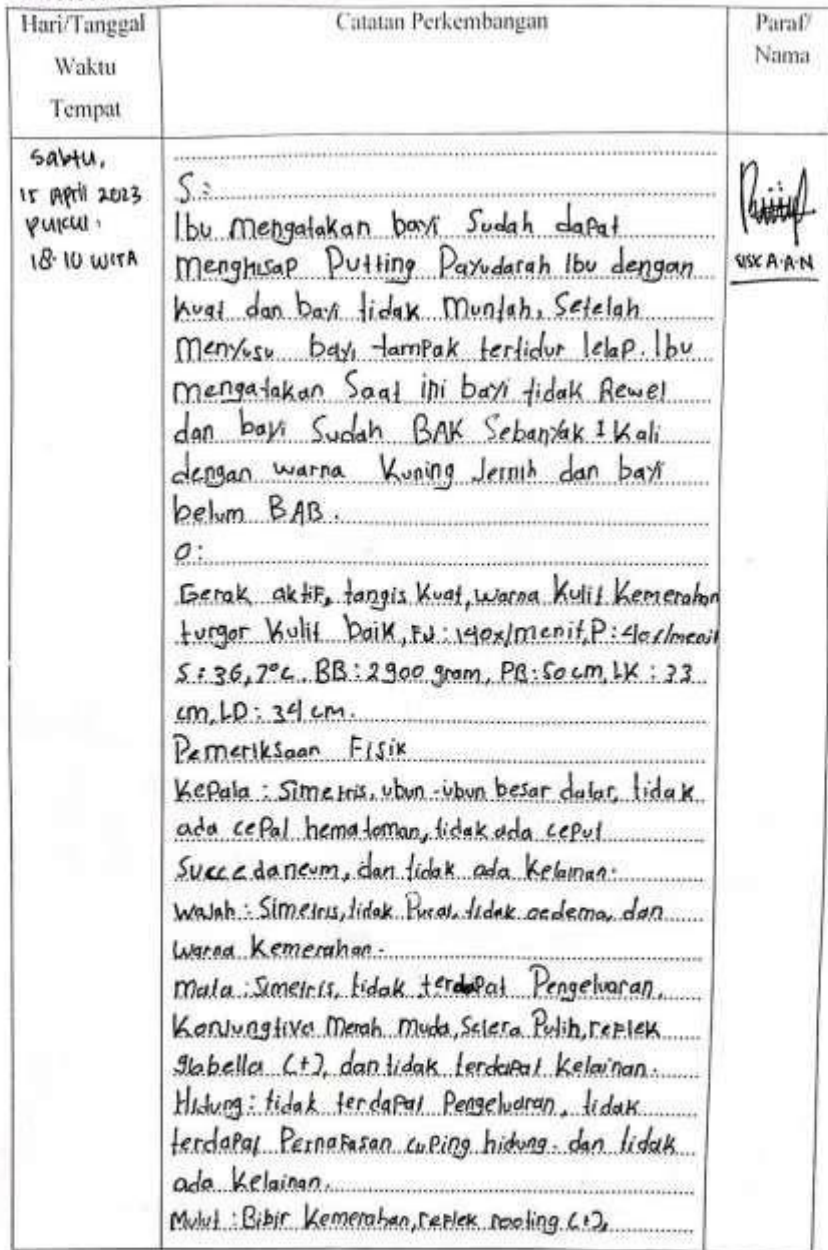 Hari/Tanggal
Waktu
Tempat
Catatan Perkembangan
Paraf/
Nama
Sabtu,
15 April 2023
Pukul :
18.10 WITA
S :
Ibu mengatakan bayi Sudah dapat
menghisap Putting Payudarah Ibu dengan
kuat dan bayi tidak Muntah, Setelah
Menyusu bayi tampak tertidur lelap. Ibu
mengatakan Saat ini bayi tidak Rewel
dan bayi Sudah BAK Sebanyak 1 Kali
dengan warna Kuning Jernih dan bayi
belum BAB.
O :
Gerak aktif, tangis Kuat, warna Kulit Kemerahan
turgor Kulit baik, FJ : 140x/menit, P : 40x/menit
S : 36,7°C. BB : 2900 gram, PB : 50 cm, LK : 33
cm, LD : 34 cm.
Pemeriksaan Fisik
Kepala : Simetris, ubun-ubun besar datar, tidak
ada cepal hematoman, tidak ada ceput
Succedaneum, dan tidak ada Kelainan.
Wajah : Simetris, tidak Pucat, tidak oedema, dan
warna Kemerahan.
Mata : Simetris, tidak terdapat Pengeluaran,
Konjungtiva Merah Muda, Sclera Putih, reflek
glabella (+), dan tidak terdapat Kelainan.
Hidung : tidak terdapat Pengeluaran, tidak
terdapat Pernafasan cuping hidung. dan tidak
ada Kelainan.
Mulut : Bibir Kemerahan, reflek rooting (+),
SISKA.A.N